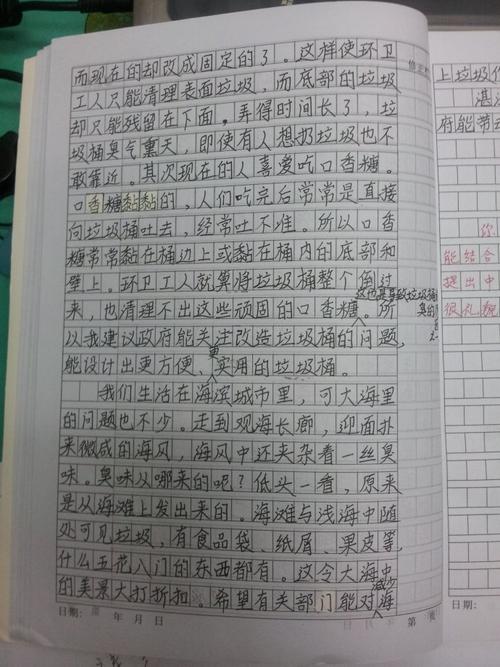 而现在的却改成固定的了。这样使环卫
工人只能清理表面垃圾，而底部的垃圾
却只能残留在下面。弄得时间长了，垃
圾桶臭气熏天，即使有人想扔垃圾也不
敢靠近。其次现在的人喜爱吃口香糖。
口香糖黏黏的，人们吃完后常常是直接
向垃圾桶吐去，经常吐不准。所以口香
糖常常黏在桶边上或黏在桶内的底部和
壁上。环卫工人就算将垃圾桶整个倒过
来，也清理不出这些顽固的口香糖。所
这也是导致垃圾桶
臭的
以我建议政府能关注改造垃圾桶的问题，
能设计出更方便、更实用的垃圾桶。
我们生活在海滨城市里，可大海里
的问题也不少。走到观海长廊，迎面扑
来微咸的海风，海风中还夹杂着一丝臭
味。臭味从哪来的呢？低头一看，原来
是从海滩上发出来的。海滩与浅海中随
处可见垃圾，有食品袋、纸屑、果皮等，
什么五花八门的东西都有。这令大海中
的美景大打折扣。希望有关部门能对减少海
日期: 年 月 日
第
上垃圾
湛
府能带
你
能结合
提出中
很礼貌